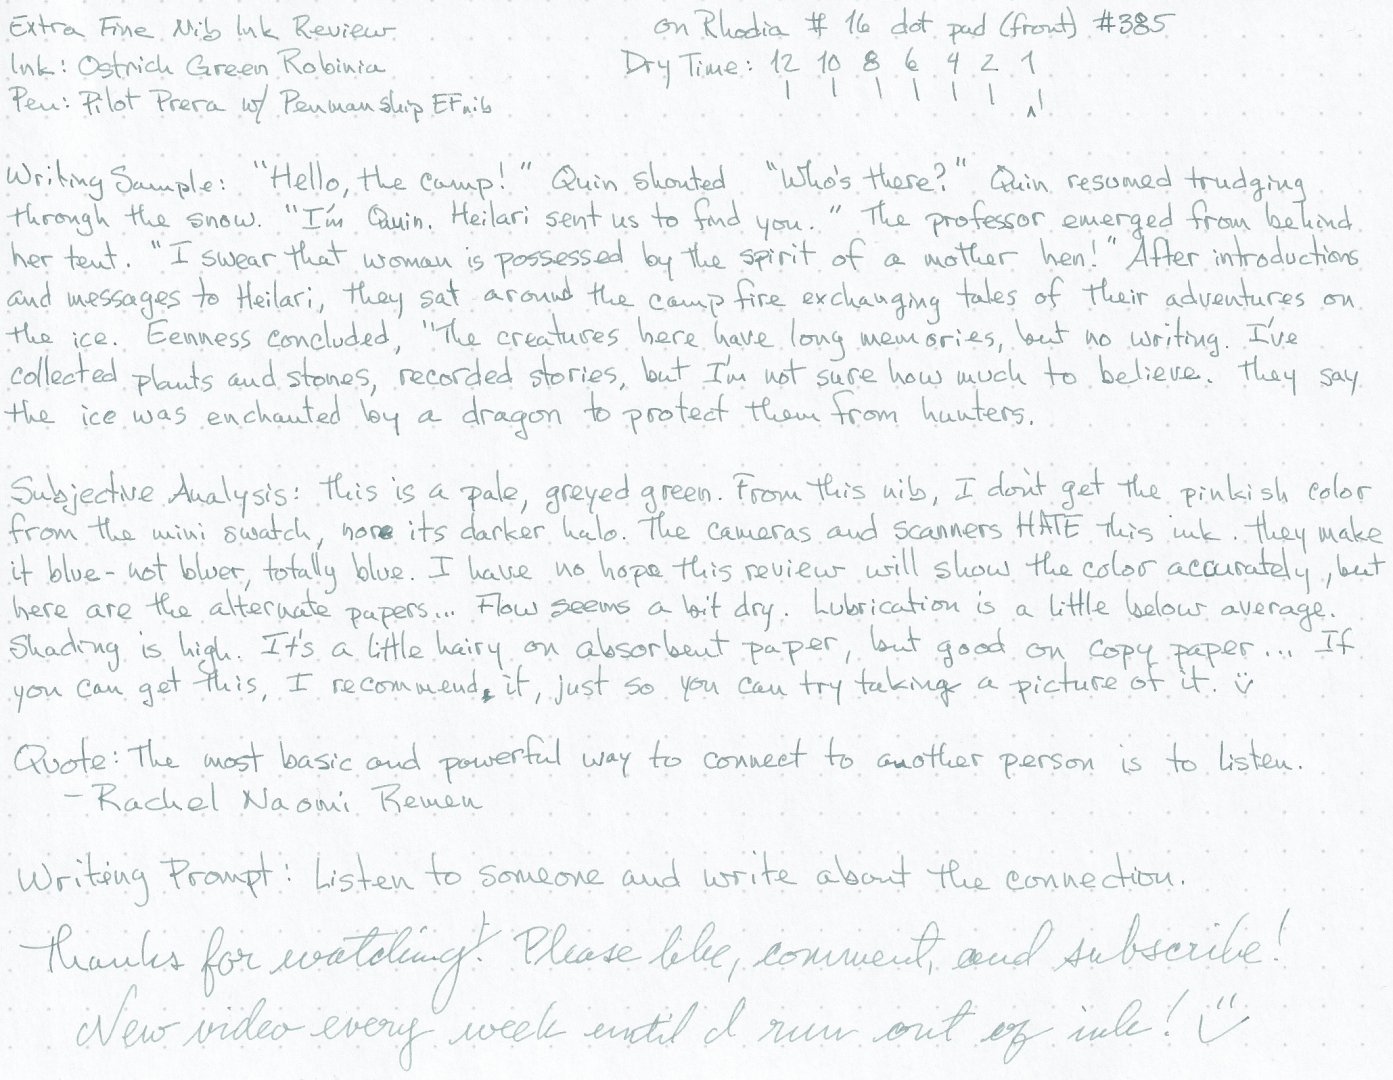 Extra Fine Nib Ink Review on Rhodia # 16 dot pad (front) #385
Ink: Ostrich Green Robinia Dry Time: 12 10 8 6 4 2 1
Pen: Pilot Prera w/ Penmanship EF nib
Writing Sample: "Hello, the camp!" Quin shouted "Who's there?" Quin resumed trudging
through the snow. "I'm Quin. Heilari sent us to find you." The professor emerged from behind
her tent. "I swear that woman is possessed by the spirit of a mother hen!" After introductions
and messages to Heilari, they sat around the campfire exchanging tales of their adventures on
the ice. Eenness concluded, "The creatures here have long memories, but no writing. I've
collected plants and stones, recorded stories, but I'm not sure how much to believe. They say
the ice was enchanted by a dragon to protect them from hunters.
Subjective Analysis: This is a pale, greyed green. From this nib, I don't get the pinkish color
from the mini swatch, nor its darker halo. The cameras and scanners HATE this ink. They make
it blue - not bluer, totally blue. I have no hope this review will show the color accurately, but
here are the alternate papers... Flow seems a bit dry. Lubrication is a little below average.
Shading is high. It's a little hairy on absorbent paper, but good on copy paper... If
you can get this, I recommend it, just so you can try taking a picture of it. ü
Quote: The most basic and powerful way to connect to another person is to listen.
- Rachel Naomi Remen
Writing Prompt: Listen to someone and write about the connection.
Thanks for watching! Please like, comment, and subscribe!
New video every week until I run out of ink! ü